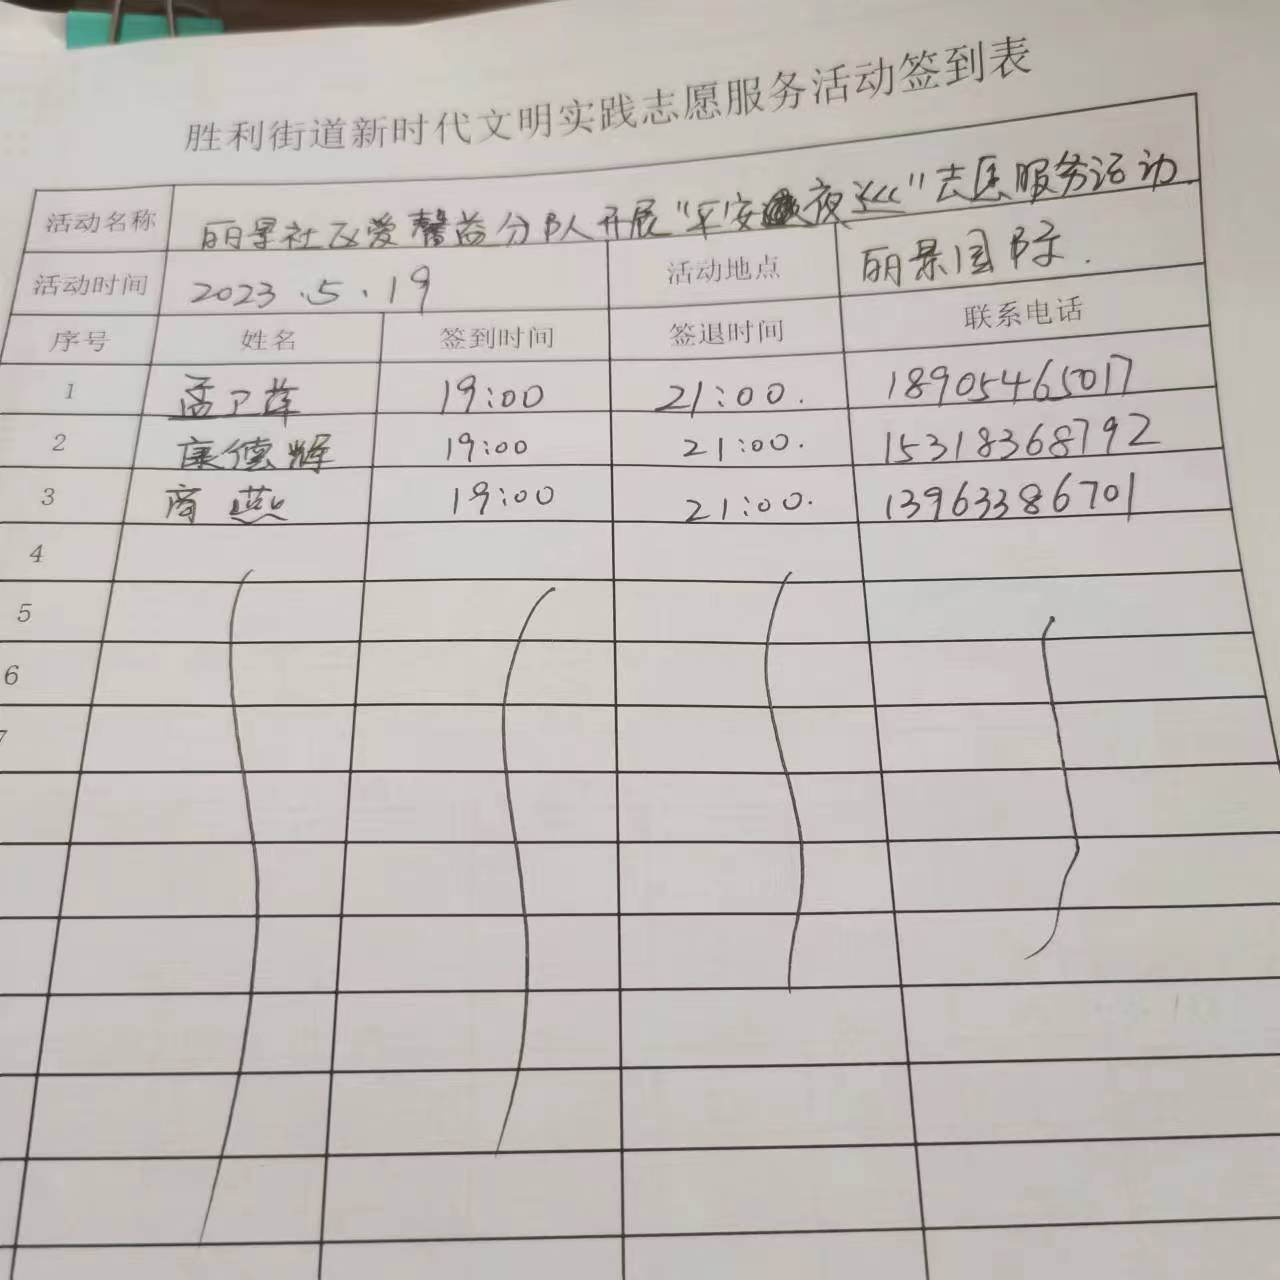 胜利街道新时代文明实践志愿服务活动签到表
活动名称 丽景社区爱馨益分队开展"平安夜巡"志愿服务活动
活动时间 2023.5.19 活动地点 丽景国际.
序号 姓名 签到时间 签退时间 联系电话
1 孟卫萍 19:00 21:00. 18905465017
2 康德辉 19:00 21:00. 15318368792
3 商燕 19:00 21:00. 13963386701
4
5
6
7